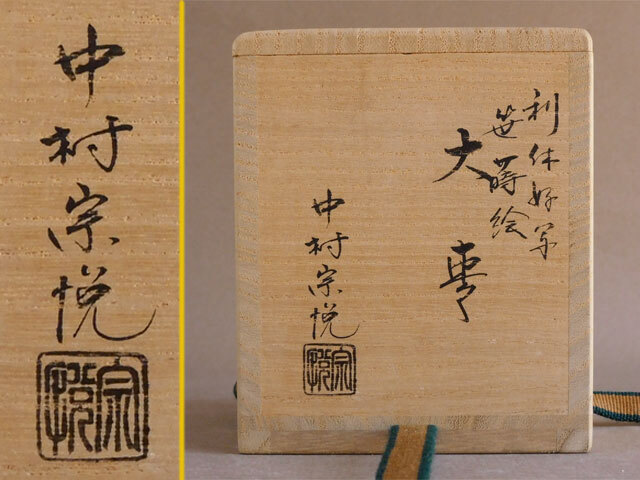 中村宗悦
宗悦
利休好写
笹蒔絵
大棗
中村宗悦
宗悦